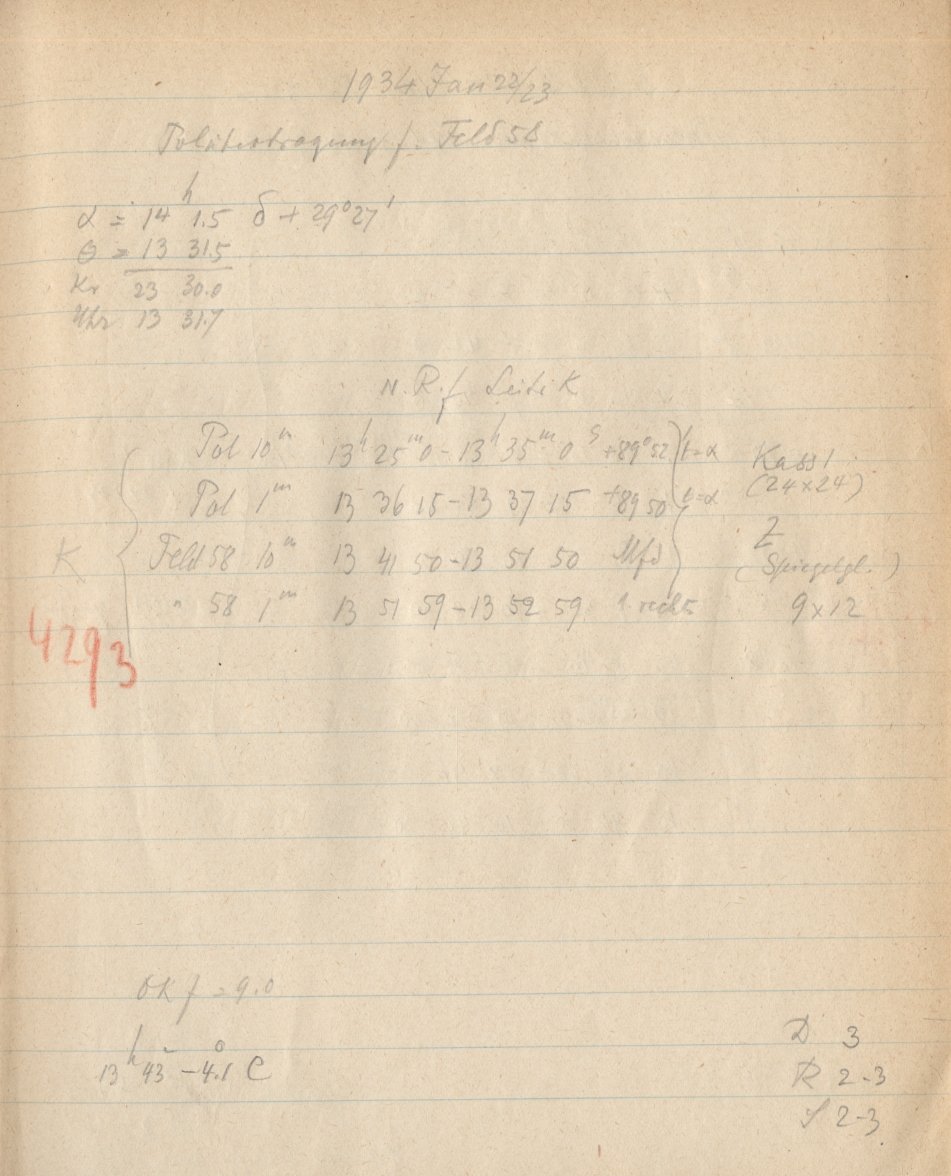 1934 Jan 22/23
Polübertragung f. Feld 58
α = 14ʰ 1.5 δ + 29°27'
θ = 13 31.5
Kr 23 30.0
Uhr 13 31.7
N. R. f Seite K
Pol 10ᵐ 13ʰ 25ᵐ 0 - 13ʰ 35ᵐ 0ˢ +89°52 t=α Kass 1
Pol 1ᵐ 13 36 15 - 13 37 15 +89 50 t=α (24×24)
K Feld 58 10ᵐ 13 41 50 - 13 51 50 Z
(Spiegelgl.)
" 58 1ᵐ 13 51 59 - 13 52 59 1 rechts 9×12
4293
OK f = 9.0
13ʰ 43 - 4.1° C
D 3
R 2-3
S 2-3